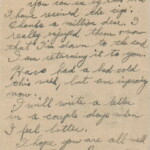 You can see by this that
I have received the cigs.
Thanks a million dear. I
really enjoyed them now
that I'm down to the end
I am returning it to you.
Have had a bad cold
this week, but am improving
now.
I will write a letter
in a couple days when
I feel better.
I hope you are all well